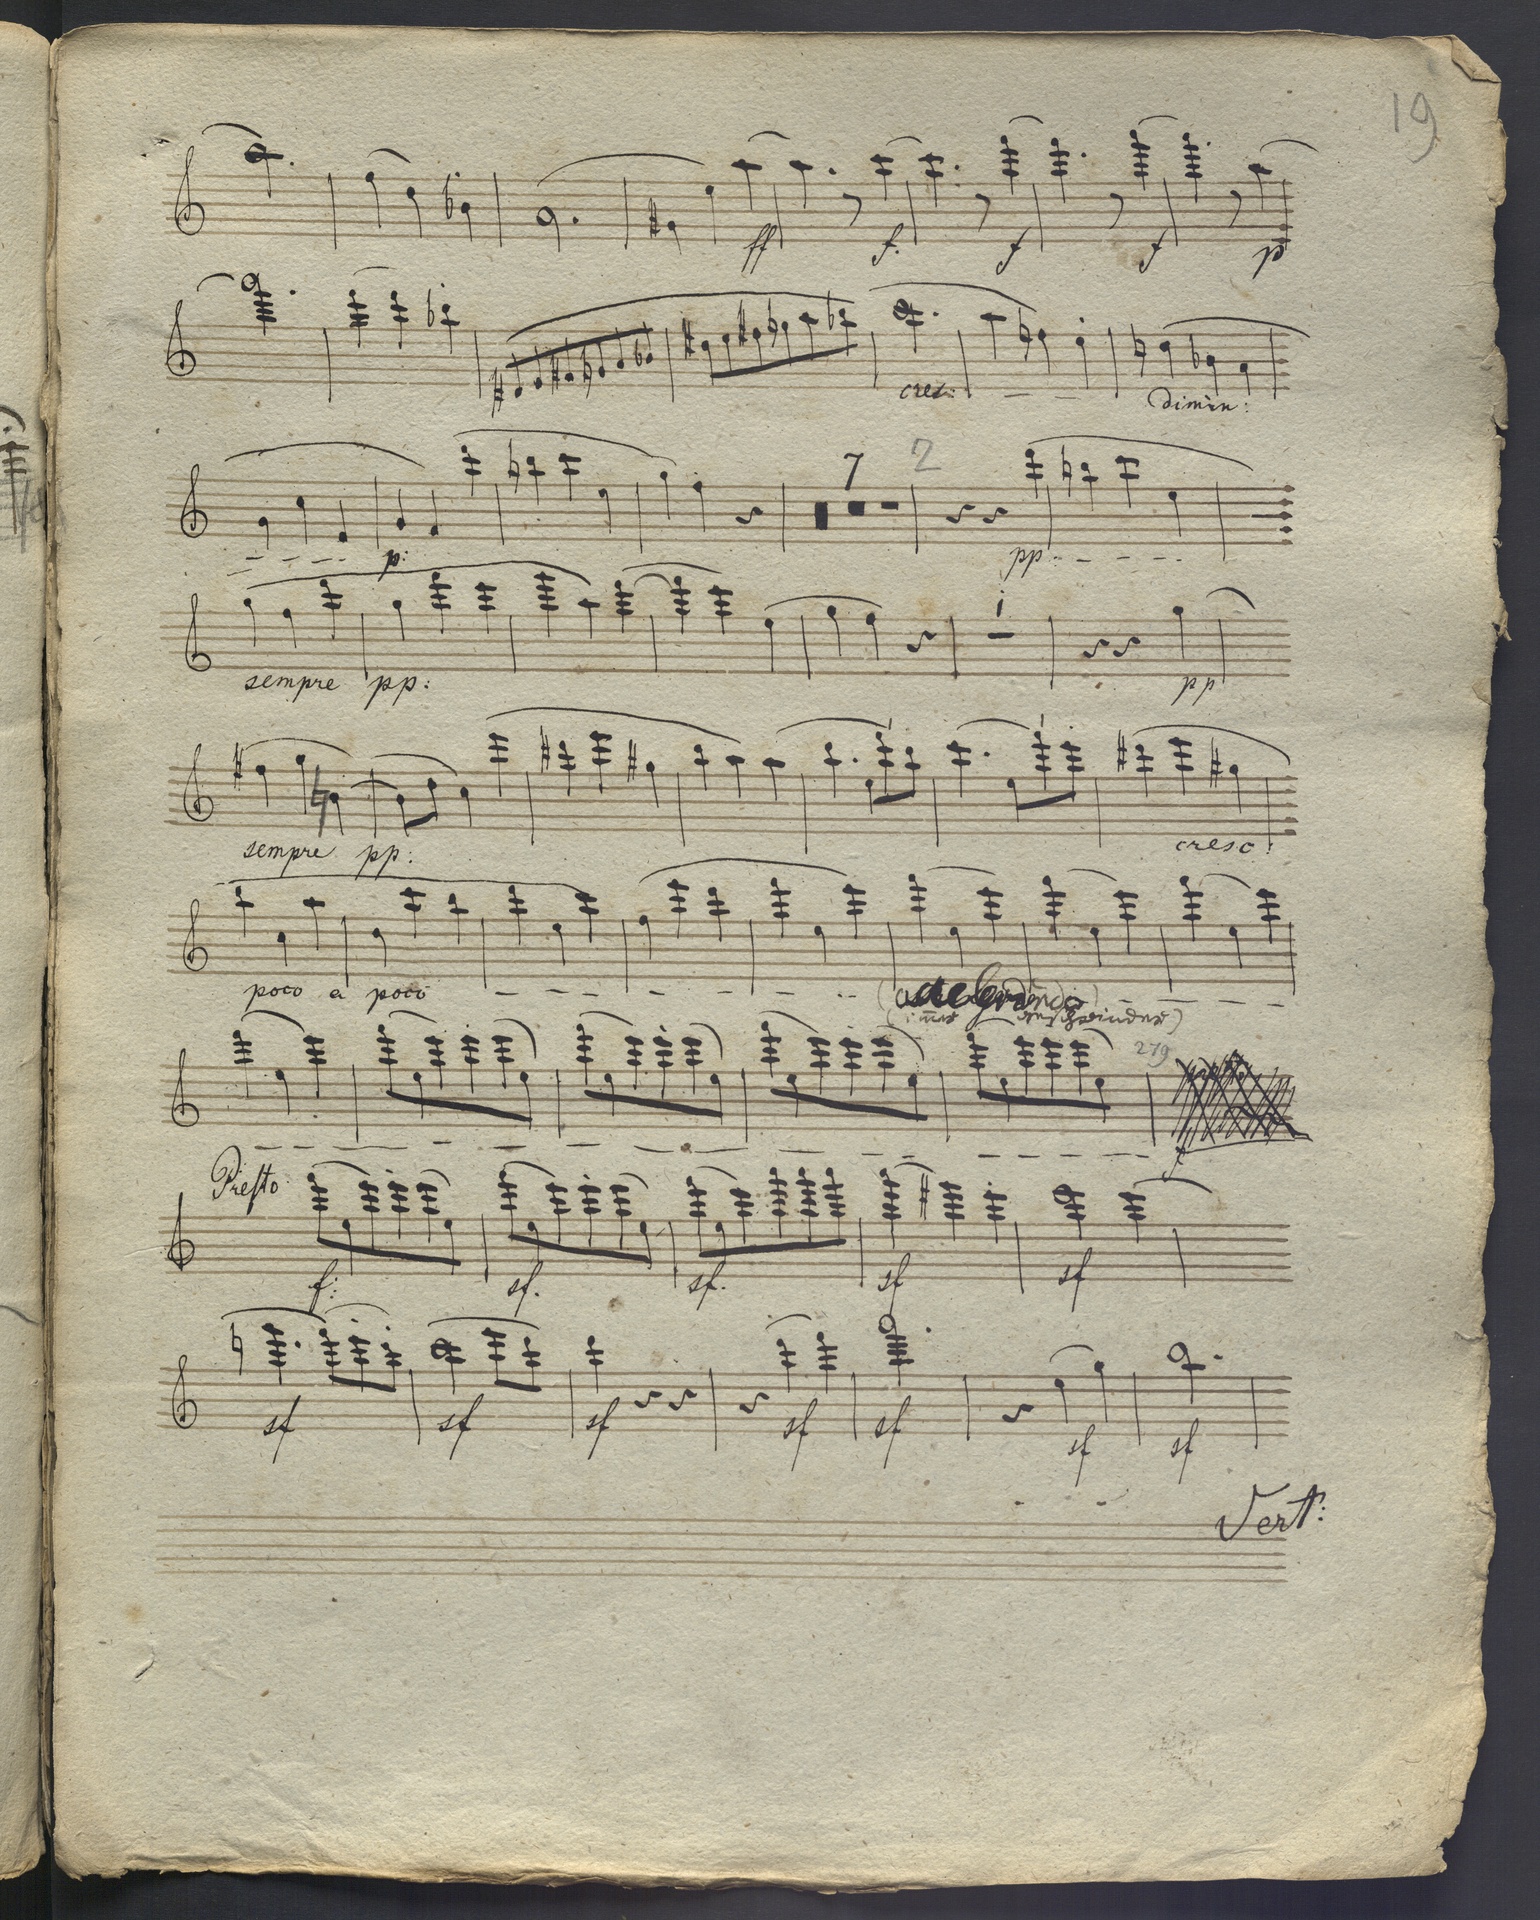 19
ff f. f f p
cres: dimin:
7 2
p: pp:
sempre pp: pp
sempre pp: cresc:
poco a poco
279
f
Presto
f: sf. sf. sf sf
sf sf sf sf sf sf sf
Vert: